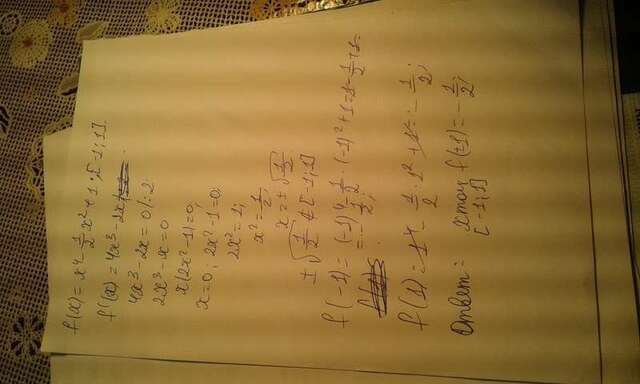 f(x) = x⁴ - 1/2 x² + 1 ; [-1; 1].
f'(x) = 4x³ - 2x
4x³ - 2x = 0 /: 2
2x³ - x = 0
x(2x² - 1) = 0;
x = 0 ; 2x² - 1 = 0;
2x² = 1;
x² = 1/2;
x = ± √1/2
± √1/2 ∉ [-1; 1]
f(-1) = (-1)⁴ - 1/2 · (-1)² + 1 = 1 - 1/2 + 1 =
= - 1/2;
f(1) = 1⁴ - 1/2 · 1² + 1 = - 1/2;
Ответ: xmax f(±1) = - 1/2;
[-1; 1]